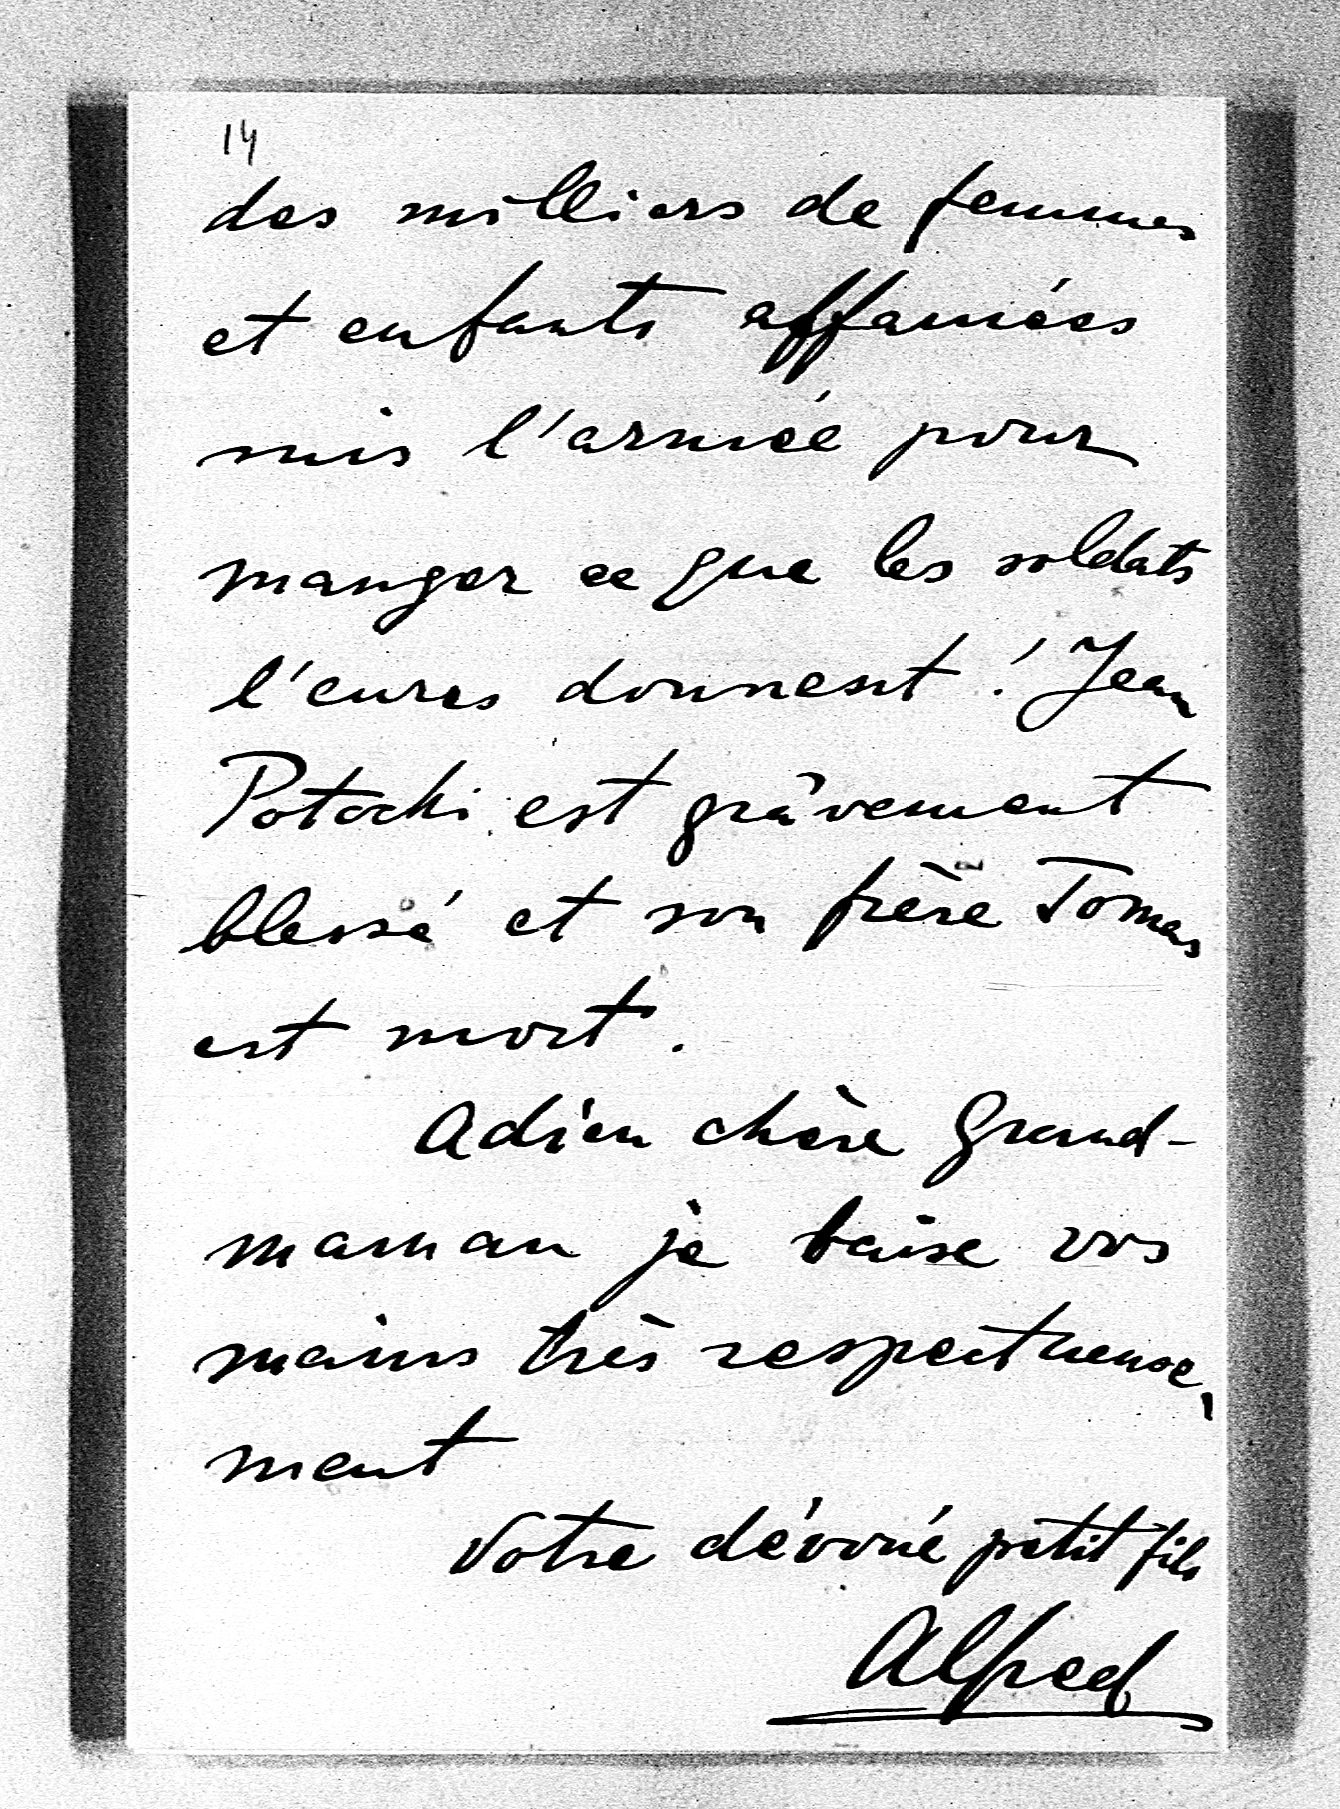 14
des milliers de femmes
et enfants affamées
suis l'armée pour
manger ce que les soldats
l'eures donnent! Jean
Potocki est grâvement
blessé et son frère Tomas
est mort.
Adieu chère Grand-
maman je baise vos
mains très respectueuse-
ment
Votre dévoué petit fils
Alfred